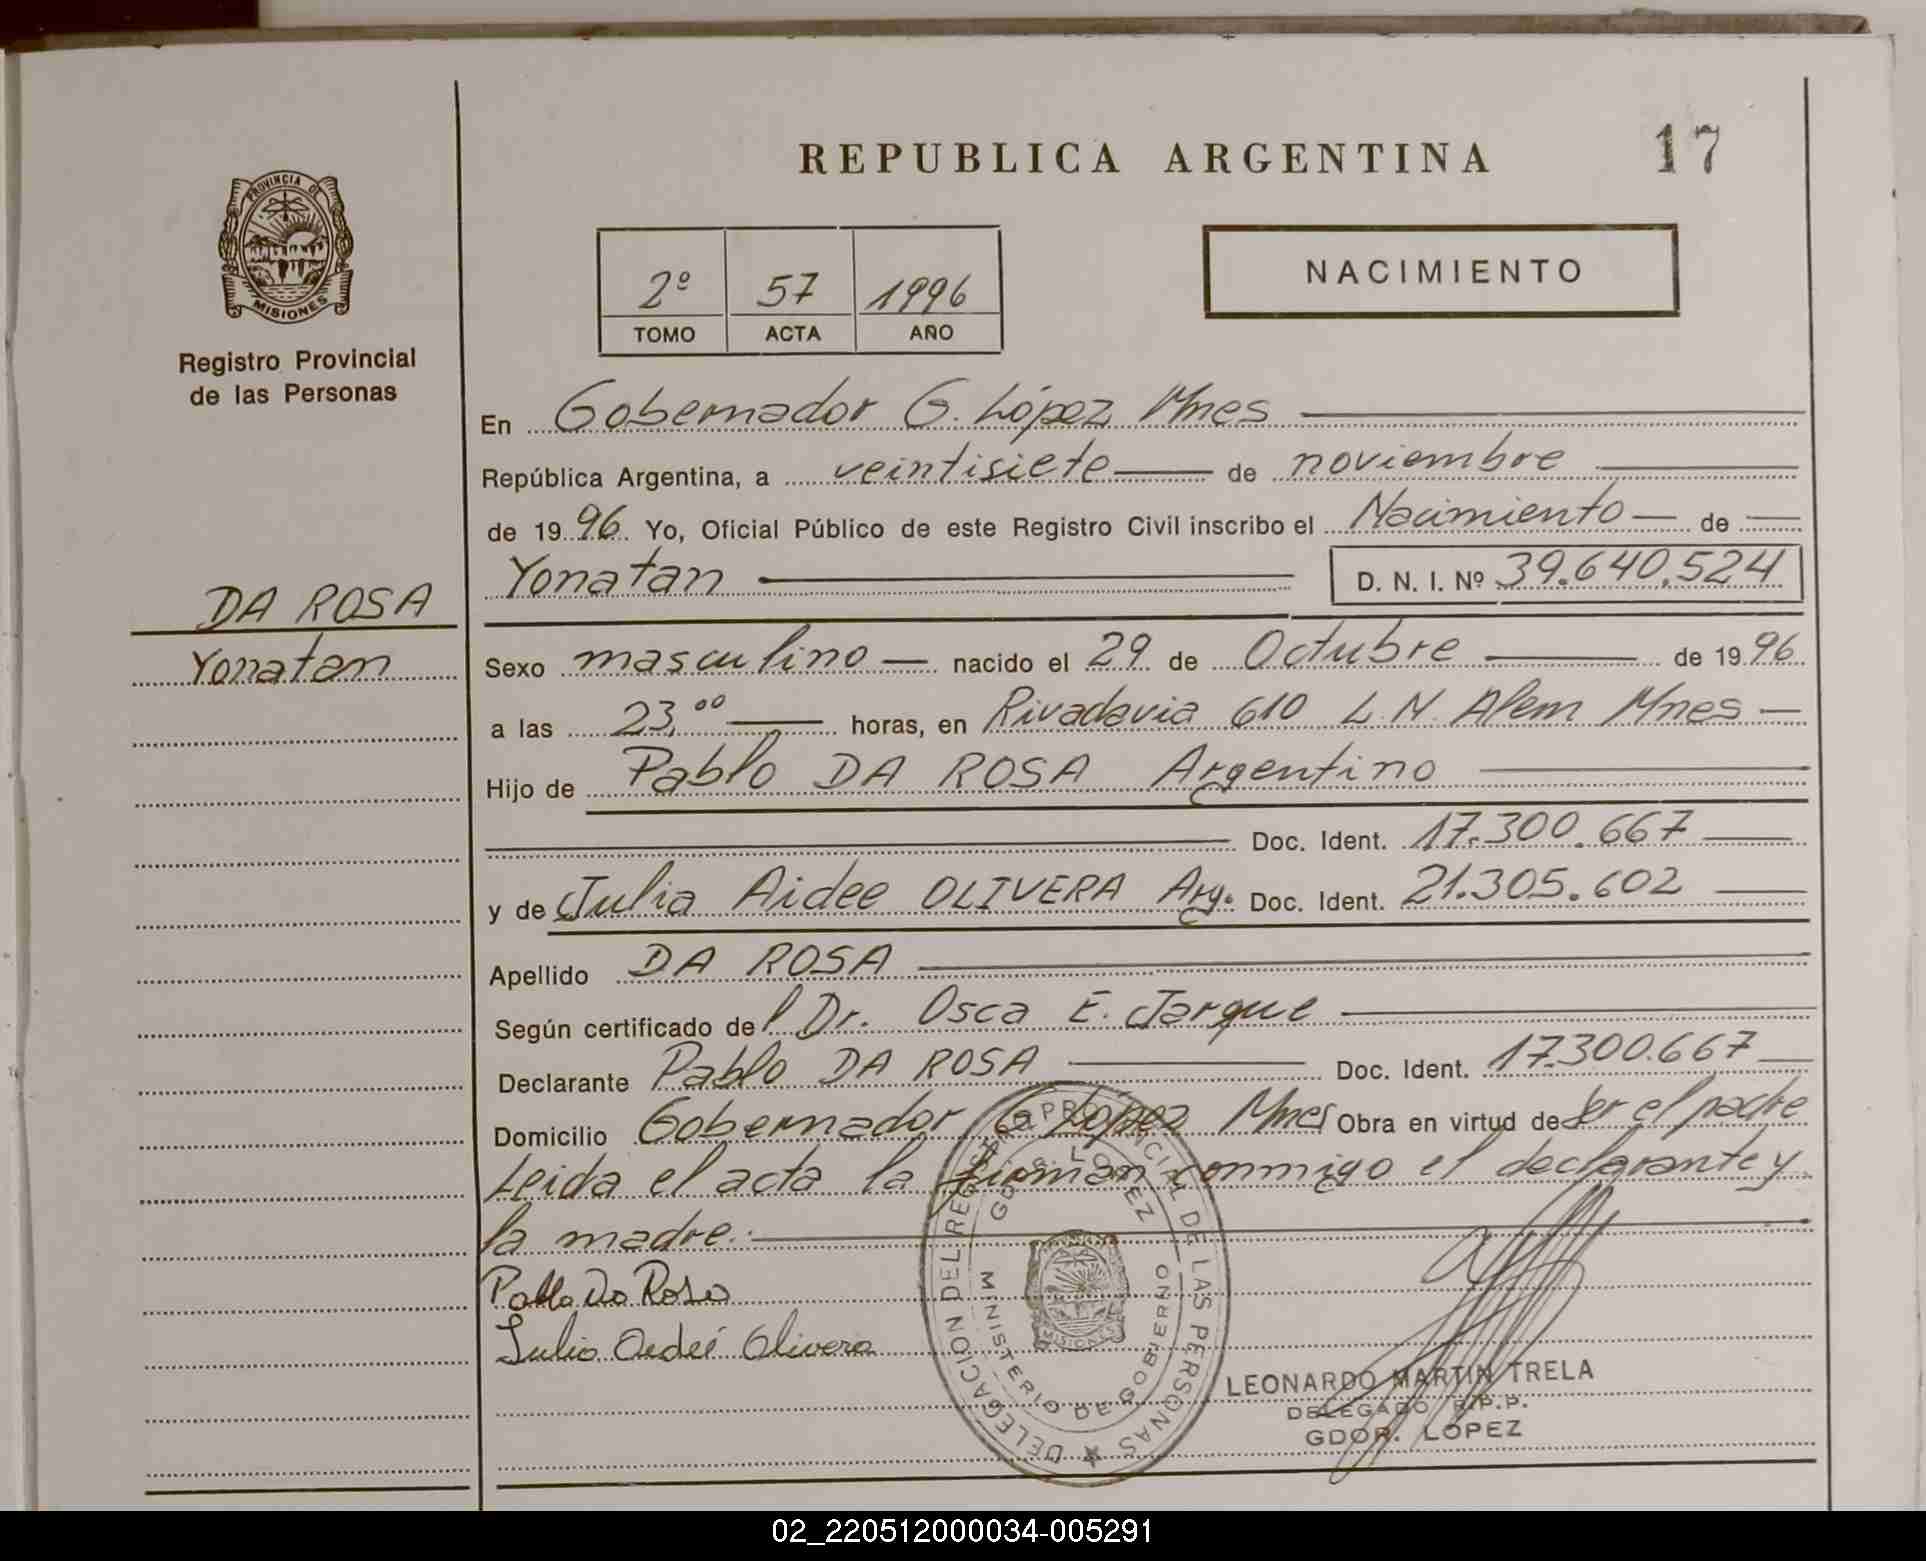 REPUBLICA ARGENTINA
17
PROVINCIA DE
MISIONES
Registro Provincial
de las Personas
2º 57 1996
TOMO ACTA AÑO
NACIMIENTO
En Gobernador G. López Mnes
República Argentina, a veintisiete de noviembre
de 1996 Yo, Oficial Público de este Registro Civil inscribo el Nacimiento de
Yonatan D. N. I. Nº 39.640.524
DA ROSA
Yonatan
Sexo masculino nacido el 29 de Octubre de 1996
a las 23,00 horas, en Rivadavia 610 L.N. Alem Mnes
Hijo de Pablo DA ROSA Argentino
Doc. Ident. 17.300.667
y de Julia Aidee OLIVERA Arg. Doc. Ident. 21.305.602
Apellido DA ROSA
Según certificado del Dr. Osca E. Jarque
Declarante Pablo DA ROSA Doc. Ident. 17.300.667
Domicilio Gobernador G López Mnes Obra en virtud de Ser el padre
Leida el acta la firman conmigo el declarante y
la madre.
Pablo Da Rosa
Julia Aedeé Olivera
DELEGACION DEL REGISTRO PROVINCIAL DE LAS PERSONAS
GDOR. G. LOPEZ
MINISTERIO DE GOBIERNO
MISIONES
LEONARDO MARTIN TRELA
DELEGADO R.P.P.
GDOR. LOPEZ
02_220512000034-005291